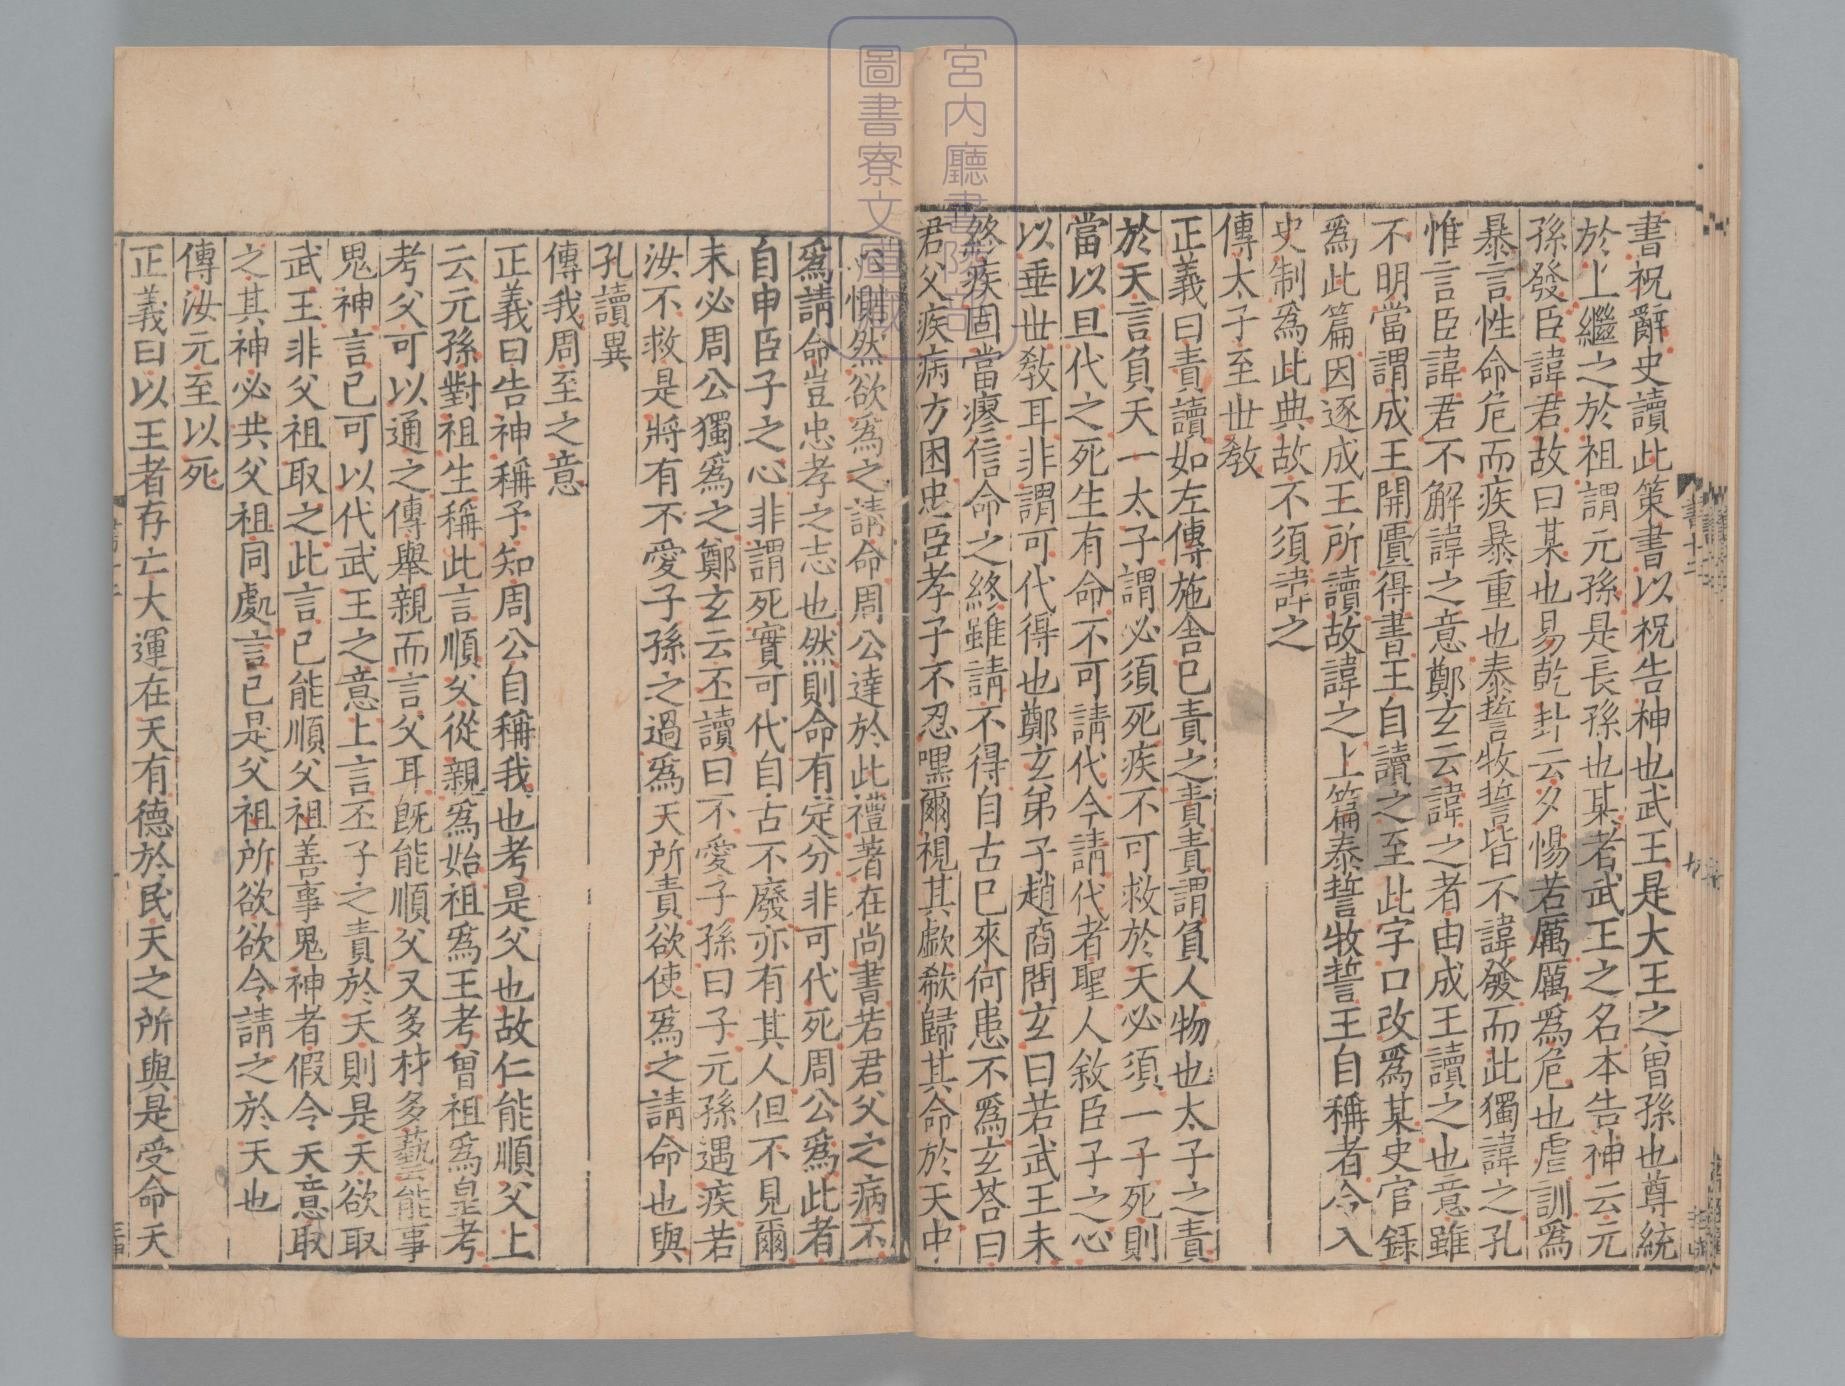 書祝辭史讀此策書以祝告神也武王是大王之曾孫也尊統
於上繼之於祖謂元孫是長孫也某者武王之名本告神云元
孫發臣諱君故曰某也易乾卦云夕惕若厲厲爲危也虐訓爲
暴言性命危而疾暴重也泰誓牧誓皆不諱發而此獨諱之孔
惟言臣諱君不解諱之意鄭玄云諱之者由成王讀之也意雖
不明當謂成王開匱得書王自讀之至此字口改爲某史官錄
爲此篇因逐成王所讀故諱之上篇泰誓牧誓王自稱者令入
史制爲此典故不須諱之
傳太子至世敎
正義曰責讀如左傳施舍已責之責責謂負人物也太子之責
於天言負天一太子謂必須死疾不可救於天必須一子死則
當以旦代之死生有命不可請代今請代者聖人敘臣子之心
以垂世敎耳非謂可代得也鄭玄弟子趙商問玄曰若武王未
終疾固當瘳信命之終雖請不得自古已來何患不爲玄荅曰
君父疾病方困忠臣孝子不忍嘿爾視其歔欷歸其命於天中
心惻然欲爲之請命周公達於此禮著在尚書若君父之病不
爲請命豈忠孝之志也然則命有定分非可代死周公爲此者
自申臣子之心非謂死實可代自古不廢亦有其人但不見爾
未必周公獨爲之鄭玄云丕讀曰不愛子孫曰子元孫遇疾若
汝不救是將有不愛子孫之過爲天所責欲使爲之請命也與
孔讀異
傳我周至之意
正義曰告神稱予知周公自稱我也考是父也故仁能順父上
云元孫對祖生稱此言順父從親爲始祖爲王考曾祖爲皇考
考父可以通之傳舉親而言父耳旣能順父又多材多藝能事
鬼神言己可以代武王之意上言丕子之責於天則是天欲取
武王非父祖取之此言己能順父祖善事鬼神者假令天意取
之其神必共父祖同處言己是父祖所欲欲令請之於天也
傳汝元至以死
正義曰以王者存亡大運在天有德於民天之所與是受命天
書十二
九
宮内廳書陵部
圖書寮文庫